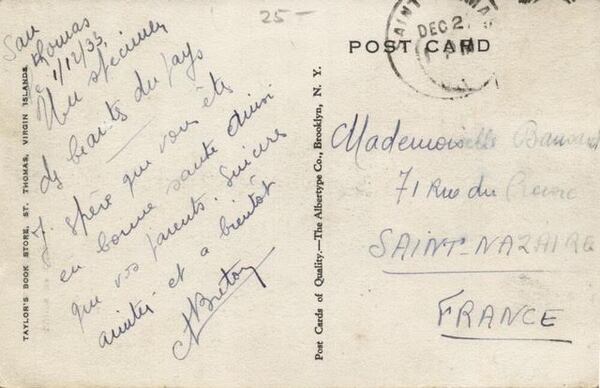 25-
San
Thomas
1/12/33
Un specimen
des beautés du pays
J. espère que vous êtes
en bonne santé ainsi
que vos parents. Sincères
amitiés et a bientôt
ABreton
TAYLOR'S BOOK STORE, ST. THOMAS, VIRGIN ISLANDS.
Post Cards of Quality.—The Albertype Co., Brooklyn, N. Y.
POST CARD
DEC 2
Mademoiselle
71 Rue du
SAINT-NAZAIRE
FRANCE